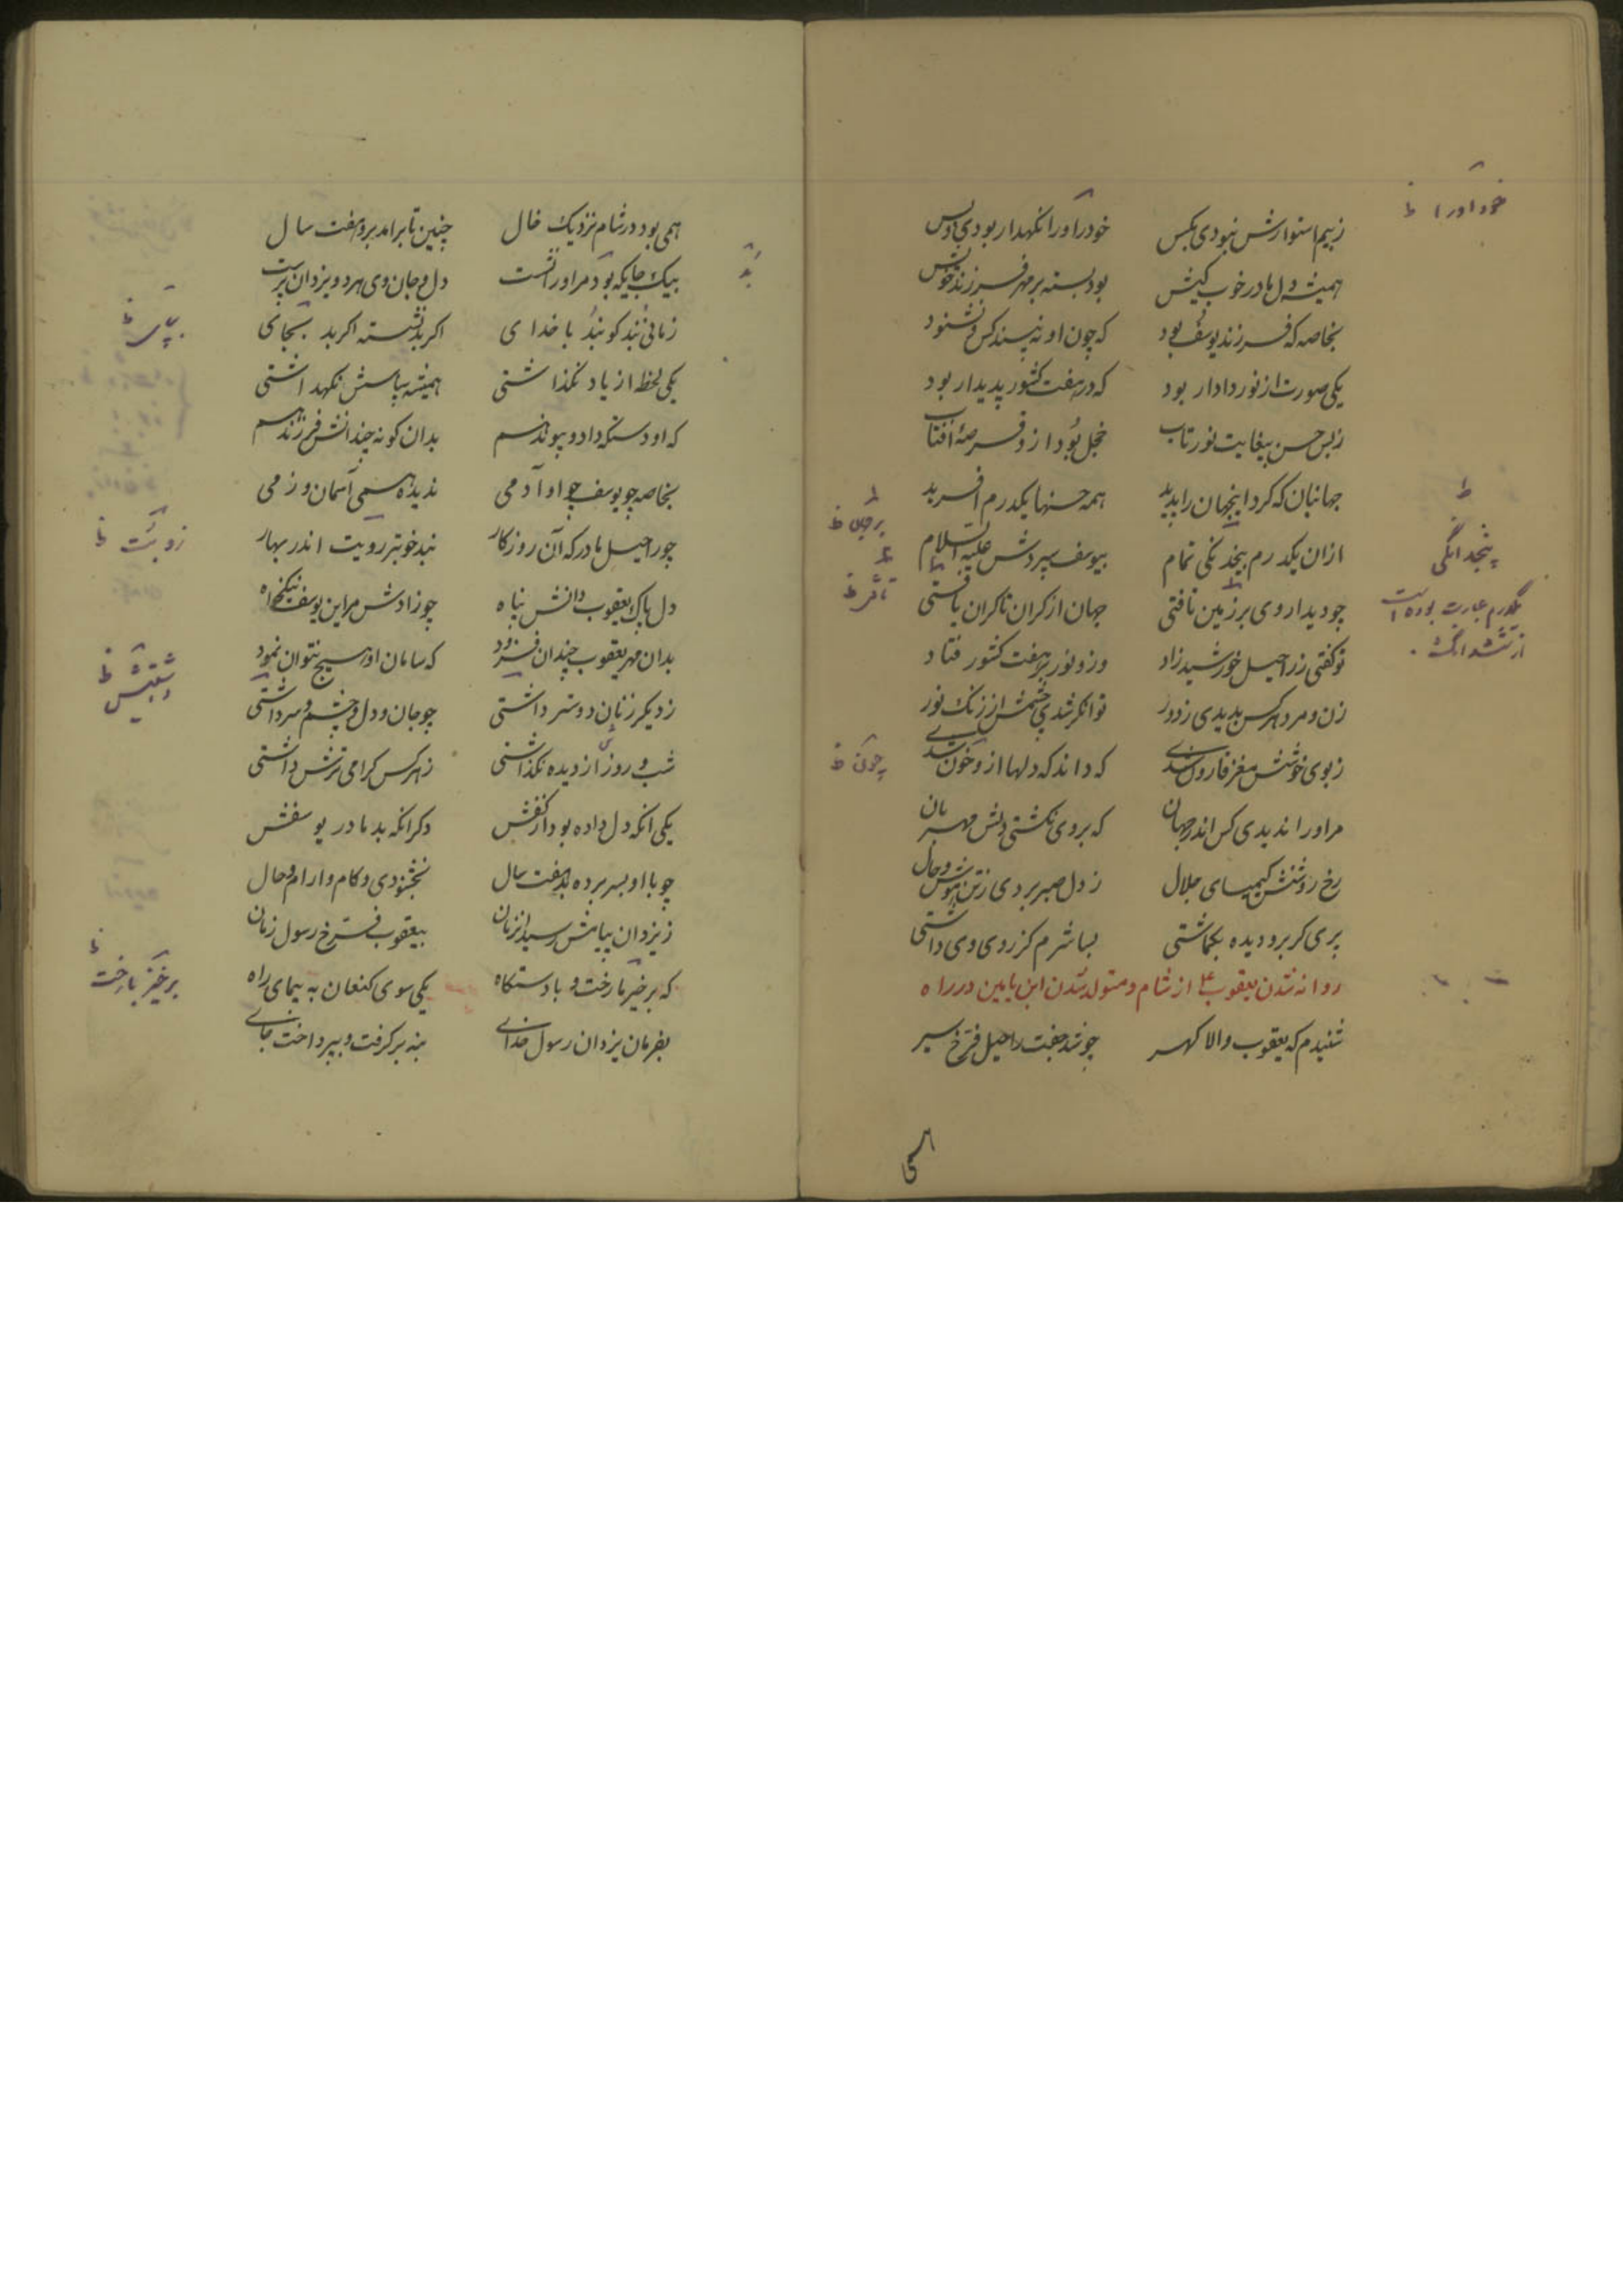 ز بیم استوارش نبودی بکس خود او را نکهدار بودی و بس
همیشه دل مادر خوب کیش بود بسته بر مهر فرزند خویش
بخاصه که فرزند یوسف بود که چون او نه بیند کس و نشنود
یکی صورت از نور دادار بود که در هفت کشور پدیدار بود
ز بس حسن بیغایت نور تاب خجل بود ازو قرصهٔ افتاب
جهانبان که کرد اینجهان را پدید همه حسنها یکدرم افرید
ازان یکدرم پنجدنکی تمام بیوسف سپردش علیه السلام
چو دیدار وی بر زمین تافتی جهان از کران تا کران یافتی
تو کفتی ز راحیل خورشید زاد وزو نور بر هفت کشور فتاد
زن و مرد هر کس بدیدی ز دور توانکر شدی چشمش از رنک نور
ز بوی خوشش مغز قارون شدی که داند که دلها ازو خون شدی
مر او را ندیدی کس اندر جهان که بر وی نکشتی دلش مهربان
رخ روشنش کیمیای جلال ز دل صبر بردی ز تن هوش و حال
پری کر برو دیده بکماشتی بسا شرم کز روی وی داشتی
روانه شدن یعقوب ع از شام و متولد شدن ابن یامین در راه
شنیدم که یعقوب والا کهر چو شد جفت راحیل فرخ سیر
همی
خود او را ظ
پنجدانگی
یکدرم عبارت بوده است
از شش دانگ
چون ظ
همی بود در شام نزدیک خال چنین تا برامد برو هفت سال
بیک جایکه بود مر او را نشست دل و جان وی هر دو یزدان پرست
زمانی نبد کو نبد با خدای اکر بد نشسته اکر بد بجای
یکی لحظ از یاد نکذاشتی همیشه بپاسش نکهداشتی
که او دستکه داد و پیوند هم بدان کونه چندانش فرزند هم
بخاصه چو یوسف چو او آدمی ندیده همی آسمان و زمی
چو راحیل مادر که آن روزکار نبد خوبتر رویت اندر بهار
دل پاک یعقوب دانش پناه چو زادش مر این یوسف نیکخواه
بدان مهر یعقوب چندان فزود که سامان او هیچ نتوان نمود
ز دیکر زنان دوستر داشتی چو جان و دل و چشم و سر داشتی
شب و روز از دیده نکذاشتی ز هر کس کرامی ترش داشتی
یکی انکه دل داده بود از کفش دکر انکه بد مادر یوسفش
چو با او بسر برده بد هفت سال بخشنودی و کام و ارام و حال
ز یزدان پیامش رسید انزمان بیعقوب فرخ رسول زمان
که برخیز با رخت و با دستکاه یکی سوی کنعان به پیمای راه
بفرمان یزدان رسول خدای بنه بر کرفت و بپرداخت جای
بپای ظ
برخیز با رخت